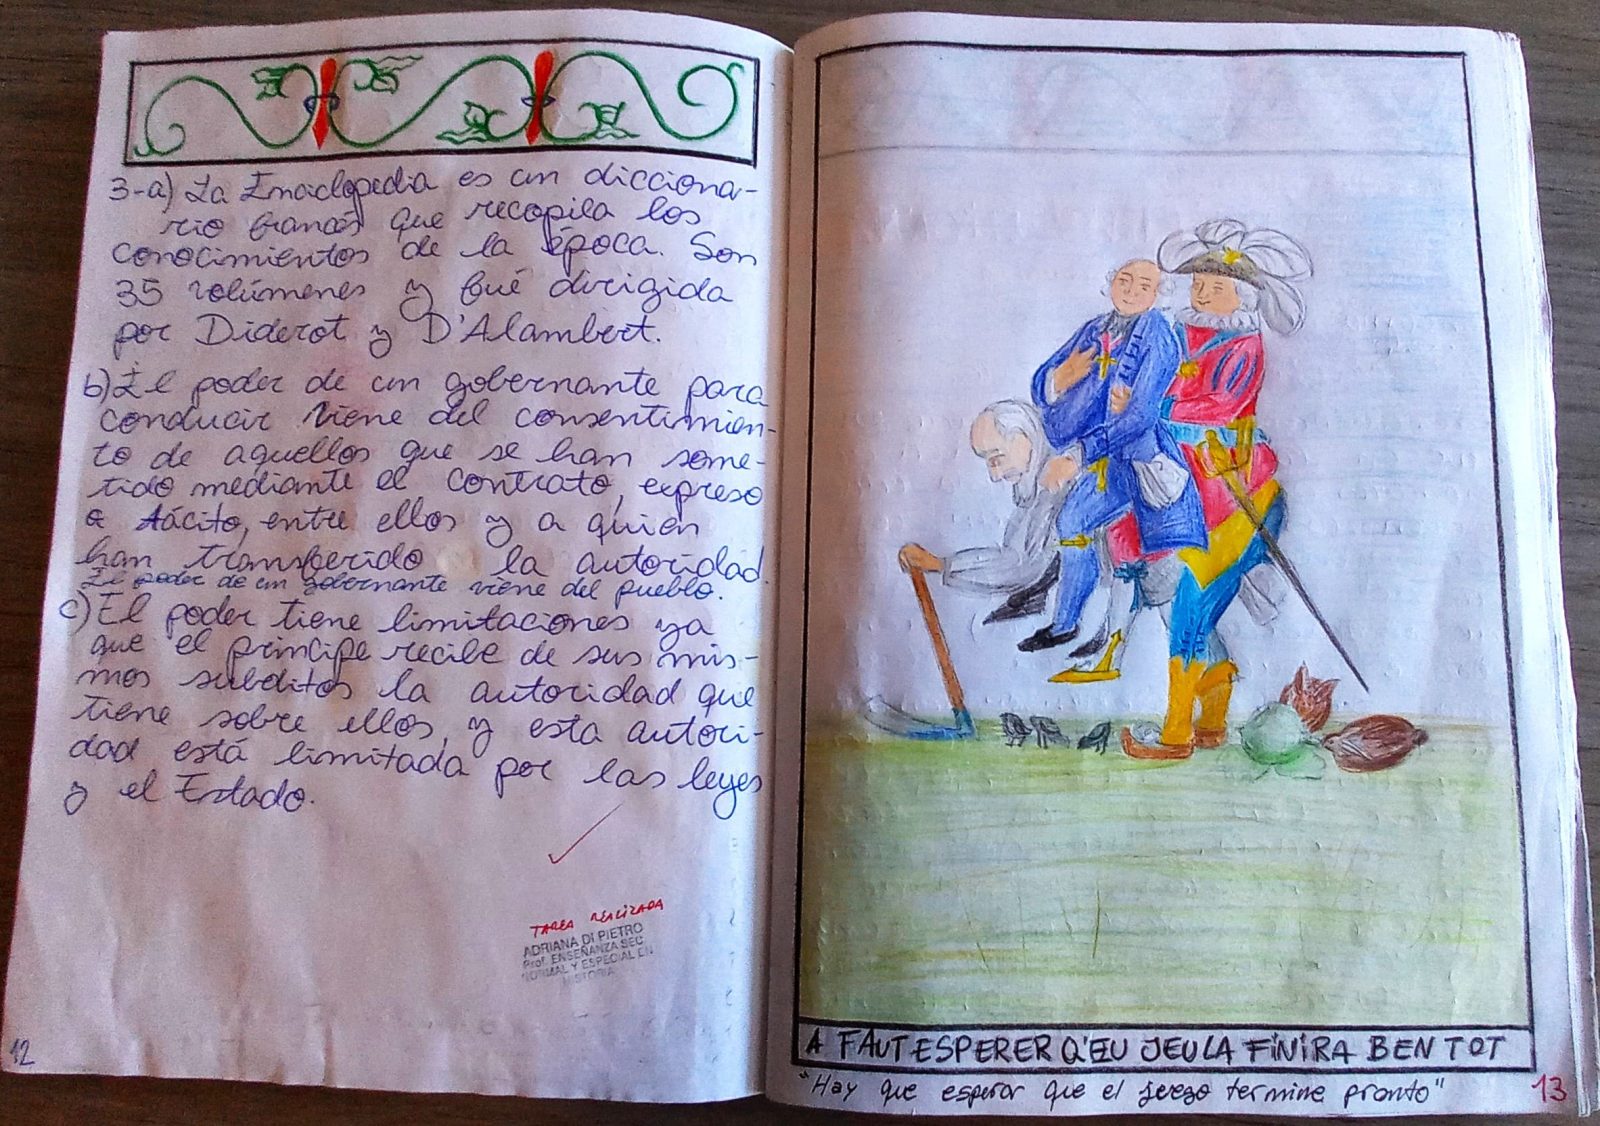 3-a) La Enciclopedia es un dicciona-
rio francés que recopila los
conocimientos de la época. Son
35 volúmenes y fué dirigida
por Diderot y D'Alambert.
b) El poder de un gobernante para
conducir viene del consentimien-
to de aquellos que se han some-
tido mediante el contrato, expreso
o tácito, entre ellos y a quien
han transferido la autoridad.
El poder de un gobernante viene del pueblo.
c) El poder tiene limitaciones ya
que el príncipe recibe de sus mis-
mos subditos la autoridad que
tiene sobre ellos, y esta autori-
dad está limitada por las leyes
y el Estado.
TAREA REALIZADA
ADRIANA DI PIETRO
Prof. ENSEÑANZA SEC.
NORMAL Y ESPECIAL EN
HISTORIA
12
A FAUT ESPERER Q'EU JEU LA FINIRA BEN TOT
"Hay que esperar que el juego termine pronto"
13